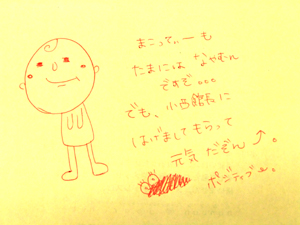 まこってぃーも
たまには なやむん
ですぞ。。。
でも、小西館長に
はげまして もらって
元気 だぞん ⤴。
ポジティブ